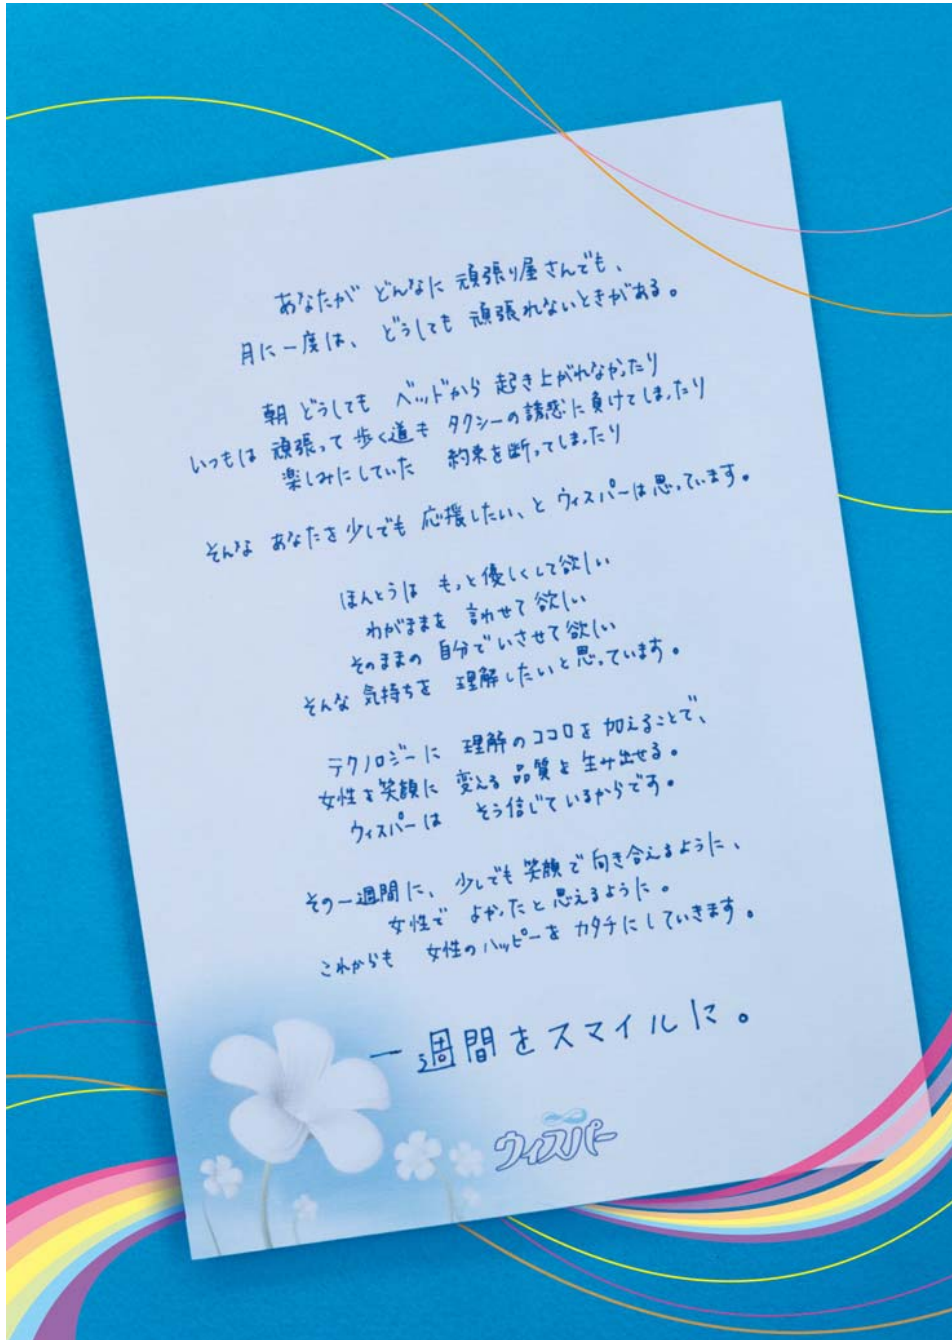 あなたが どんなに 頑張り屋さんでも、
月に一度は、どうしても 頑張れないときがある。
朝 どうしても ベッドから 起き上がれなかったり
いつもは 頑張って 歩く道も タクシーの誘惑に負けてしまったり
楽しみにしていた 約束を断ってしまったり
そんな あなたを少しでも 応援したい、と ウィスパーは思っています。
ほんとうは もっと優しくして欲しい
わがままを 言わせて 欲しい
そのままの 自分で いさせて 欲しい
そんな 気持ちを 理解したいと思っています。
テクノロジーに 理解のココロを 加えることで、
女性を笑顔に 変える 品質を 生み出せる。
ウィスパーは そう信じているからです。
その一週間に、少しでも 笑顔で 向き合えるように、
女性で よかったと思えるように。
これからも 女性のハッピーを カタチにしていきます。
一週間をスマイルに。
ウィスパー